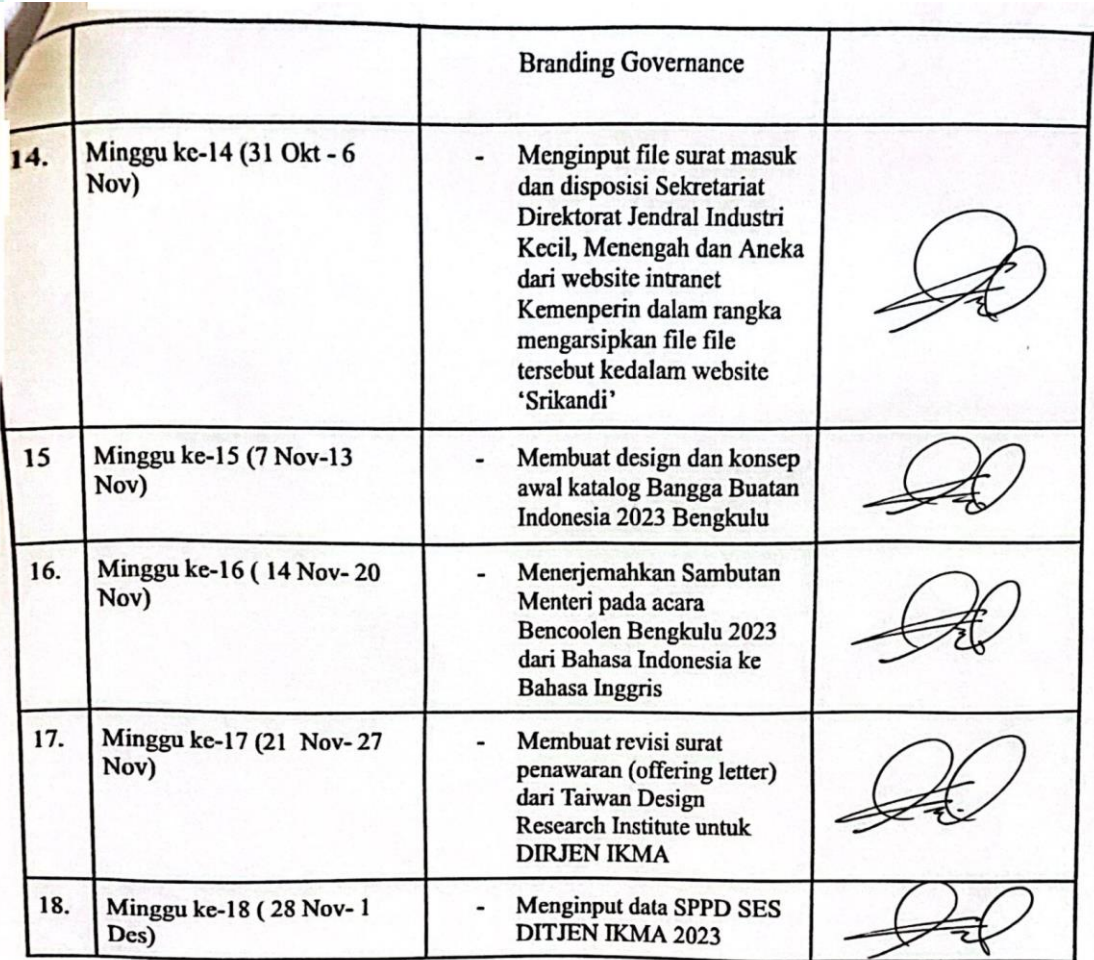 Branding Governance
14.
Minggu ke-14 (31 Okt - 6
Nov)
- Menginput file surat masuk
dan disposisi Sekretariat
Direktorat Jendral Industri
Kecil, Menengah dan Aneka
dari website intranet
Kemenperin dalam rangka
mengarsipkan file file
tersebut kedalam website
‘Srikandi’
15
Minggu ke-15 (7 Nov-13
Nov)
- Membuat design dan konsep
awal katalog Bangga Buatan
Indonesia 2023 Bengkulu
16.
Minggu ke-16 ( 14 Nov- 20
Nov)
- Menerjemahkan Sambutan
Menteri pada acara
Bencoolen Bengkulu 2023
dari Bahasa Indonesia ke
Bahasa Inggris
17.
Minggu ke-17 (21 Nov- 27
Nov)
- Membuat revisi surat
penawaran (offering letter)
dari Taiwan Design
Research Institute untuk
DIRJEN IKMA
18.
Minggu ke-18 ( 28 Nov- 1
Des)
- Menginput data SPPD SES
DITJEN IKMA 2023